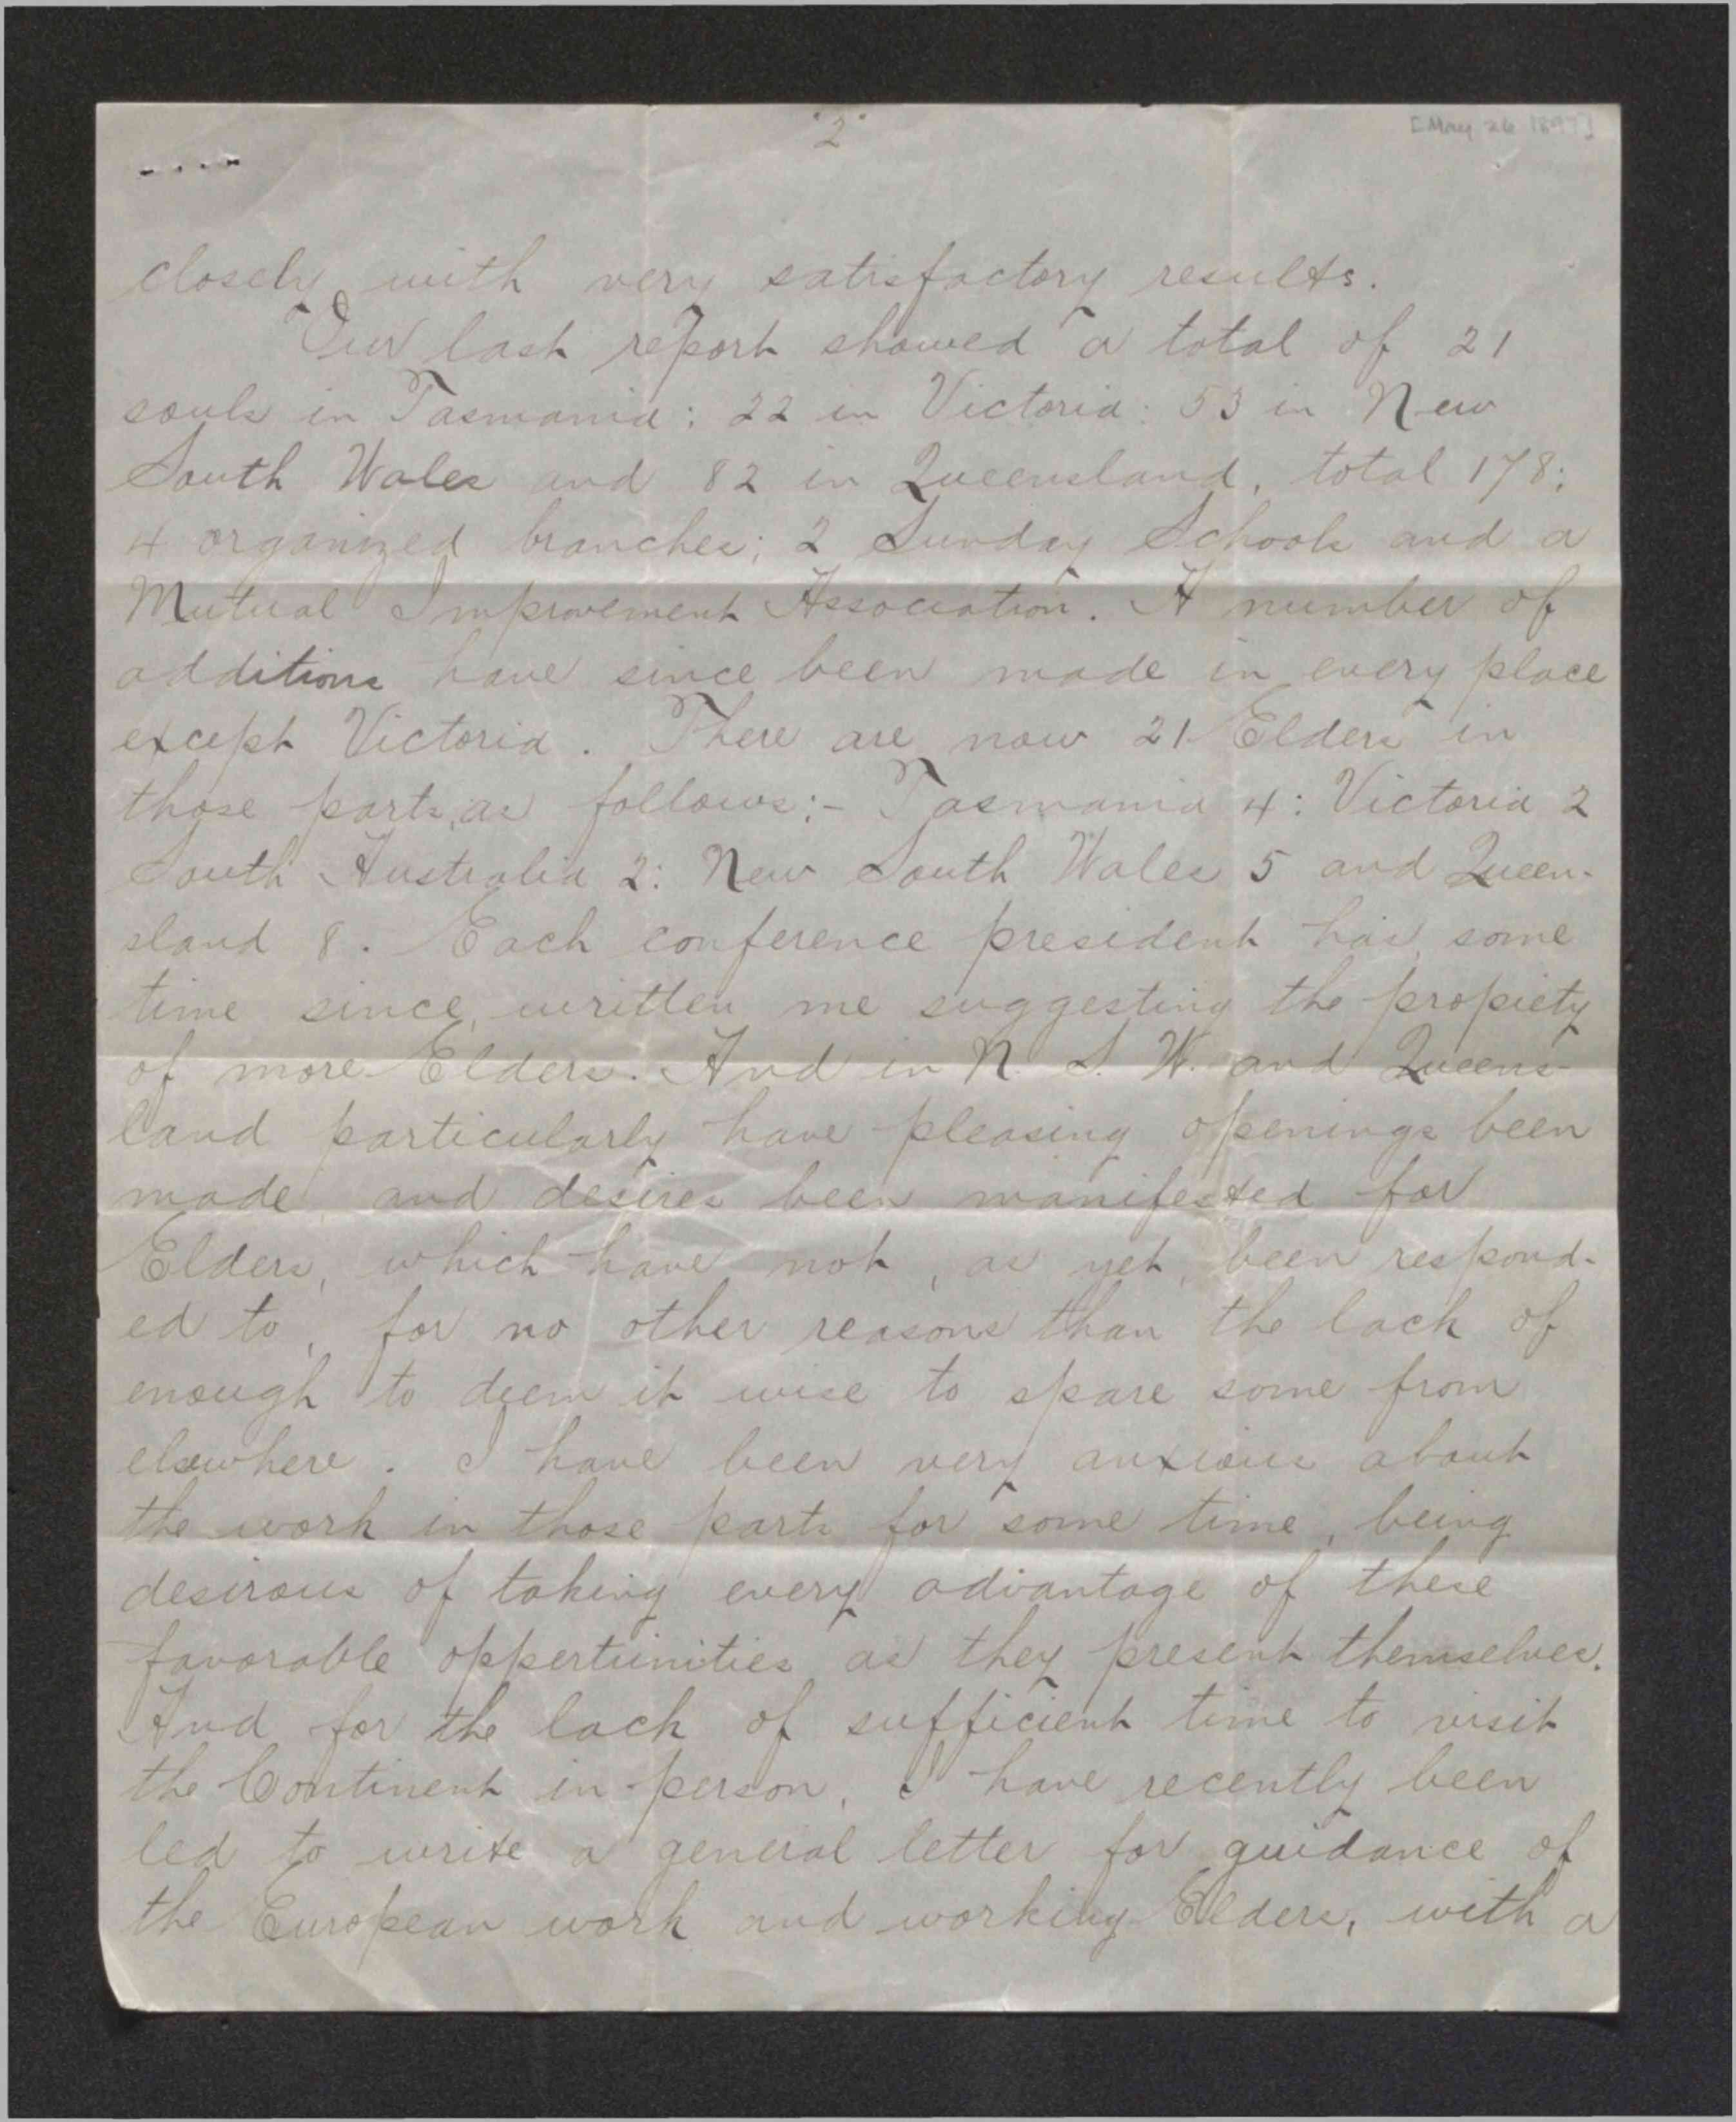 "2"
[May 26 1897]
closely with very satisfactory results.
Our last report showed a total of 21
souls in Tasmania: 22 in Victoria: 53 in New
South Wales and 82 in Queensland, total 178;
4 organized branches; 2 Sunday Schools and a
Mutual Improvement Association. A number of
additions have since been made in every place
except Victoria. There are now 21 Elders in
those parts, as follows:- Tasmania 4: Victoria 2
South Australia 2: New South Wales 5 and Queen-
sland 8. Each conference president has, some
time since, written me suggesting the propiety
of more Elders. And in N. S. W. and Queens-
land particularly have pleasing openings been
made, and desires been manifested for
Elders, which have not, as yet, been respond-
ed to, for no other reasons than the lack of
enough to deem it wise to spare some from
elsewhere. I have been very anxious about
the work in those parts for some time, being
desirous of taking every advantage of these
favorable oppertunities as they present themselves.
And for the lack of sufficient time to visit
the Continent in person, I have recently been
led to write a general letter for guidance of
the European work and working Elders, with a